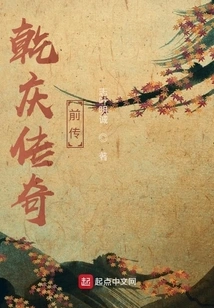 乾庆传奇
前传
著
起点中文网